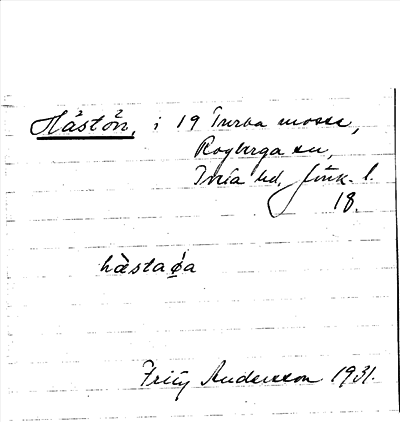 Hästön, i 19 Turba mosse,
Rogberga sn,
Tveta hd, Jönk. l.
18.
hästaöa
Fritz Andersson 1931.